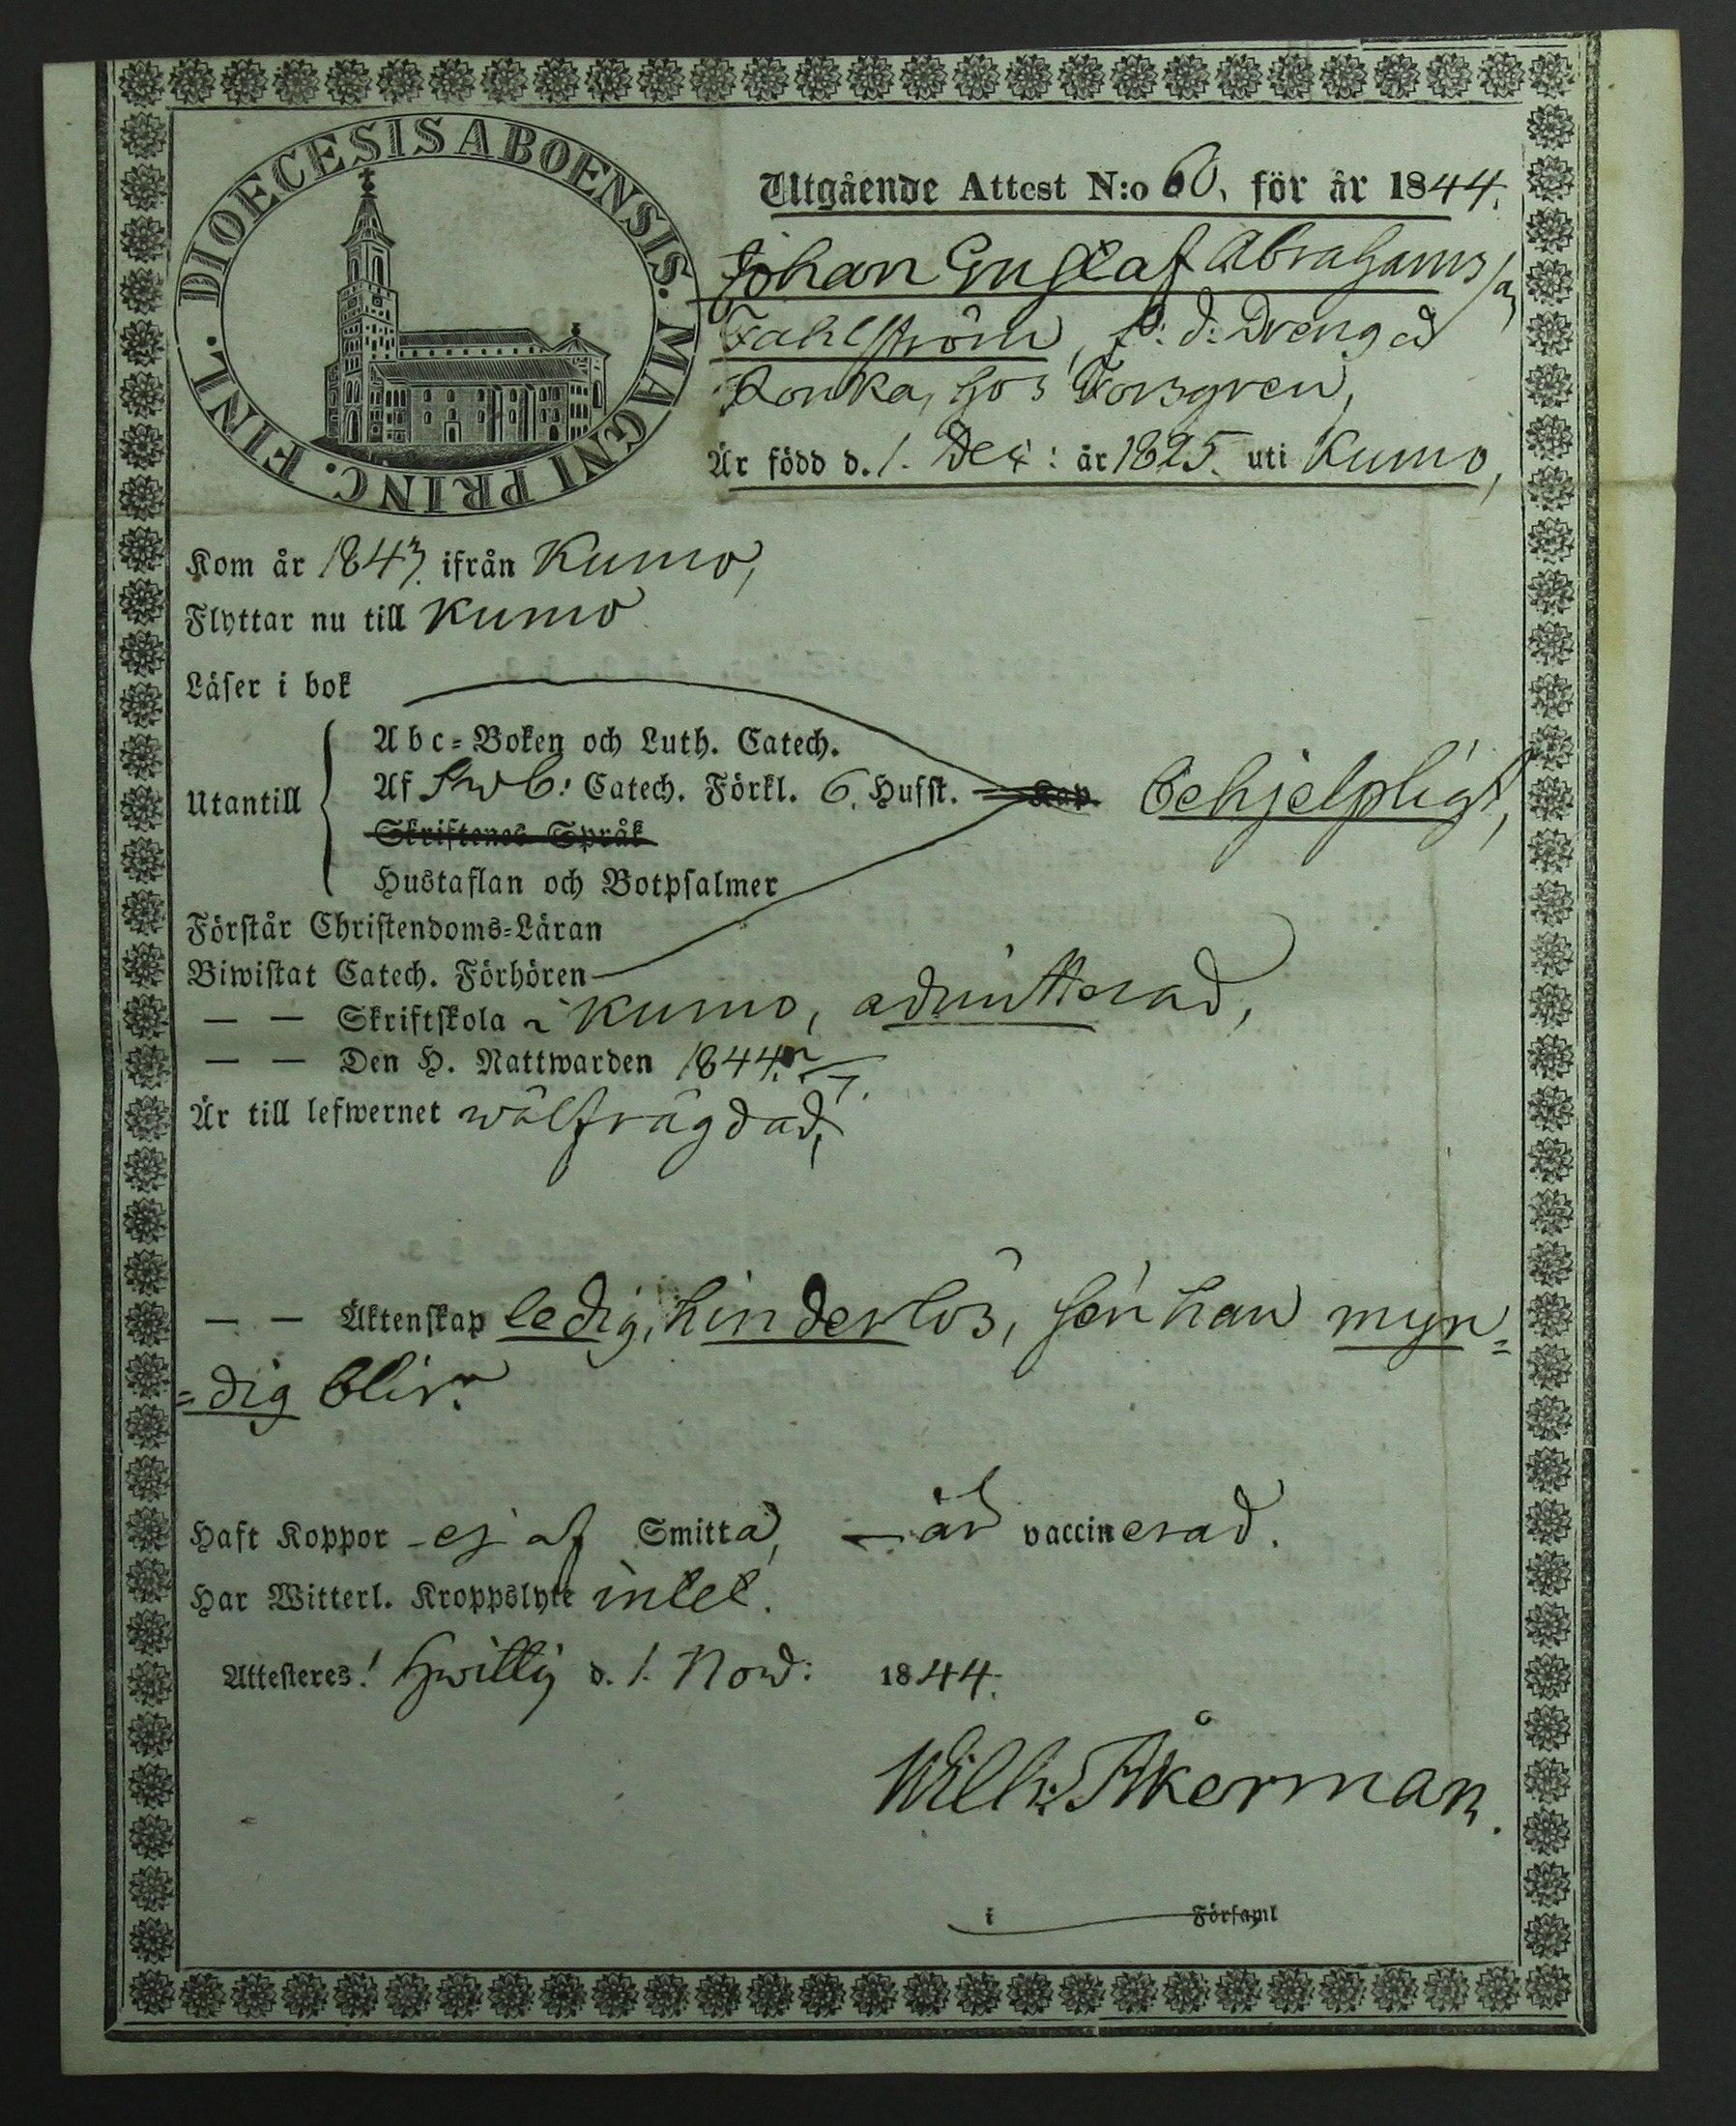 DIOECESIS ABOENSIS. MAGNI PRINC. FINL.
Utgående Attest N:o 60, för år 1844.
Johan Gustaf Abrahamss
Fahlström, f: d: Dreng å
Ronka, hos Forsgren,
Är född d. 1. Dec: år 1825. uti Kumo,
Kom år 1843. ifrån Kumo,
Flyttar nu till Kumo
Läser i bok
Utantill
Abc-Boken och Luth. Catech.
Af Swb: Catech. Förkl. 6. Hufst. Kap. behjelpligt,
Skriftenes Språk
Hustaflan och Botpsalmer
Förstår Christendoms-Läran
Biwistat Catech. Förhören
— — Skriftskola i Kumo, admitterad,
— — Den H. Nattwarden 1844.
Är till lefwernet wälfrägdad,
— — Äktenskap ledig, hinderlös, sen han myn=
=dig blir.
Haft Koppor - ej af Smitta, — är vaccinerad.
Har Witterl. Kroppslyte intet.
Attesteres! Hwittis d. 1. Nov: 1844.
Wilh: Åkerman.
i Församl